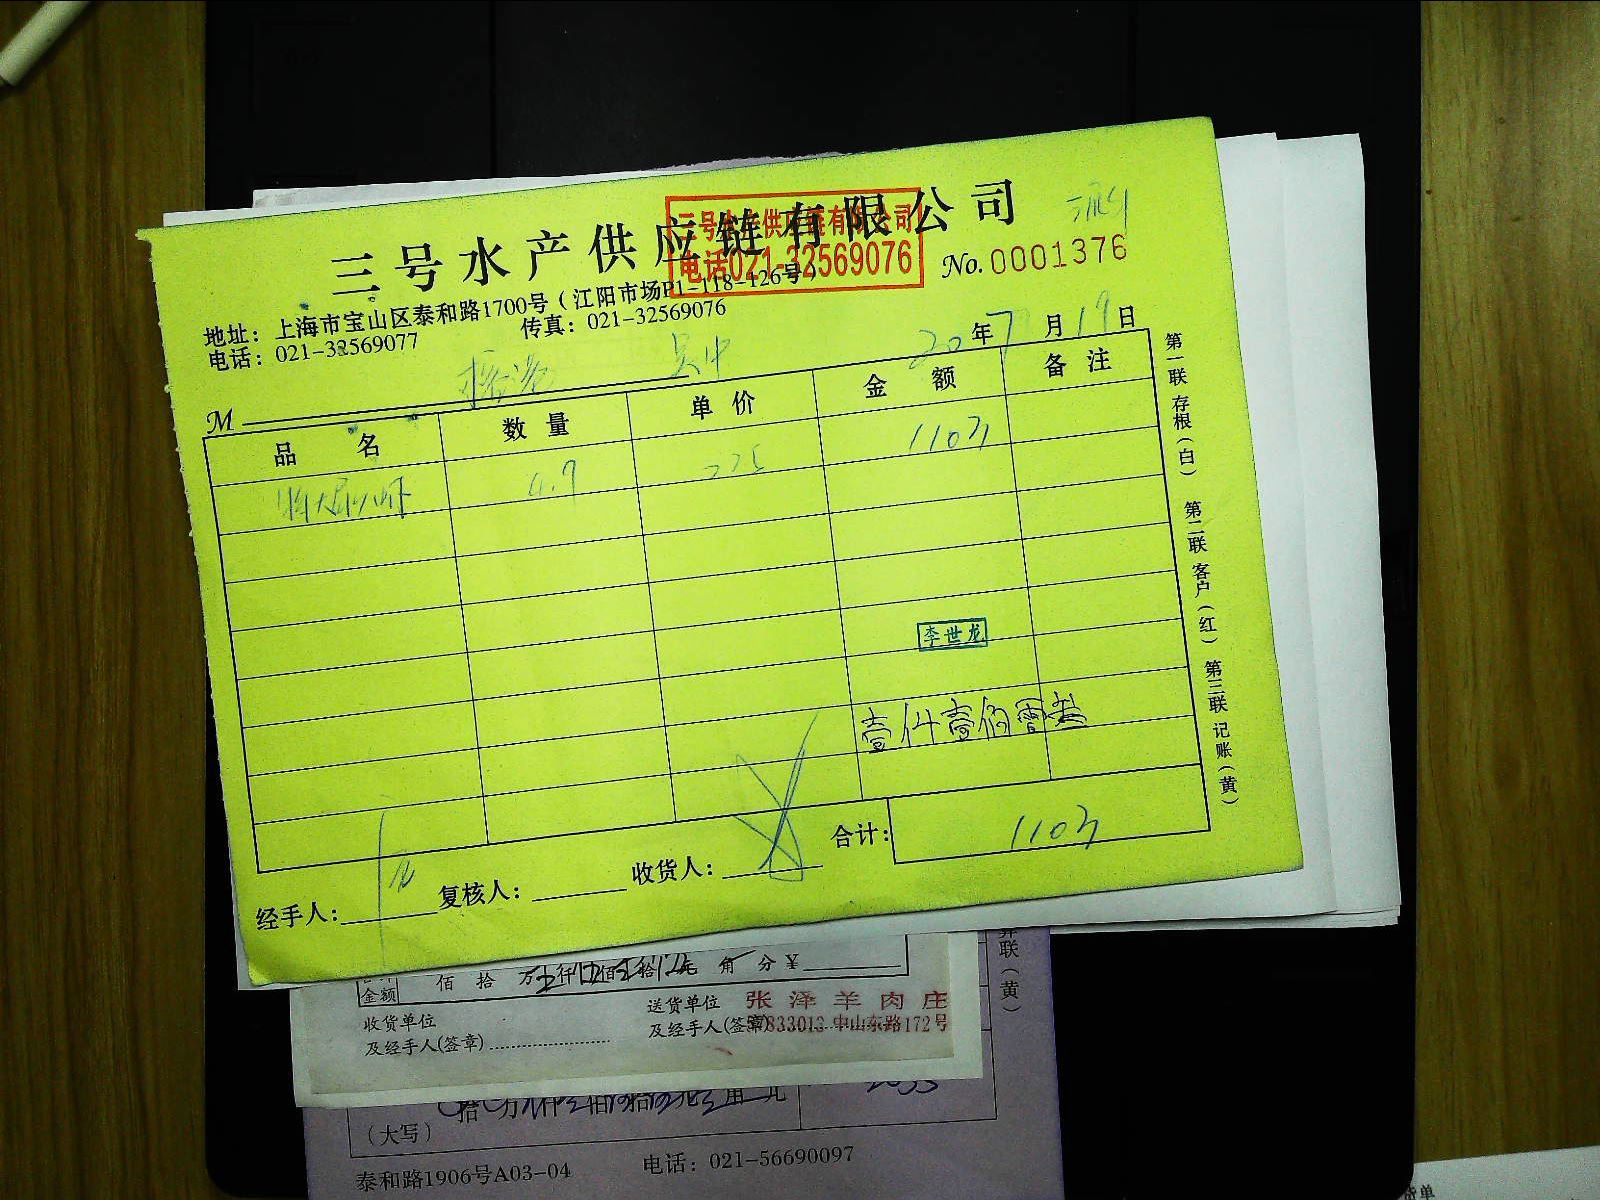 三号水产供应链有限公司
三号水产供应链有限公司
电话021-32569076
No. 0001376
地址：上海市宝山区泰和路1700号（江阳市场P1-118-126号）
电话：021-32569077 传真：021-32569076
20年7月19日
M
品名 数量 单价 金额 备注
4.9 225 1103
李世龙
壹仟壹佰零叁
合计：1103
经手人： 复核人： 收货人：
第一联 存根（白） 第二联 客户（红） 第三联 记账（黄）
金额 佰 拾 万 仟 佰 拾 元 角 分 ¥
收货单位
及经手人(签章)
送货单位 张泽羊肉庄
及经手人(签章) 中山东路172号
联（黄）
（大写）
泰和路1906号A03-04 电话：021-56690097